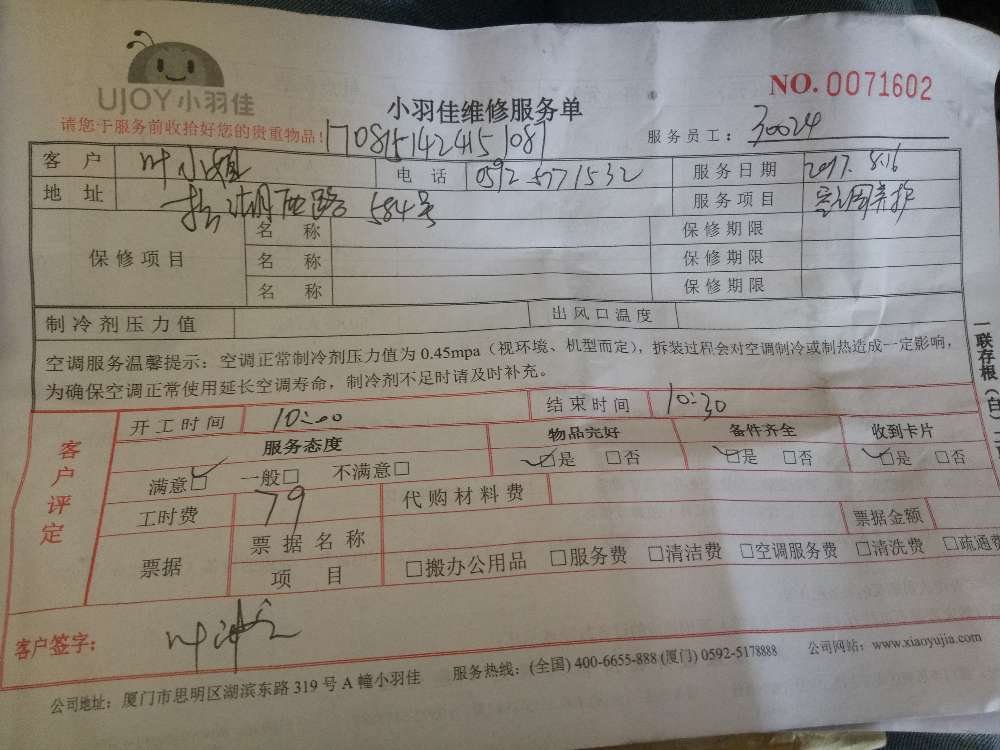 UJOY小羽佳
小羽佳维修服务单
NO.0071602
请您于服务前收拾好您的贵重物品!
1708151424151081
服务员工: 30024
客户 叶小姐 电话 0592 5771532 服务日期 2017.8.16
地址 湖西路 584号 服务项目 空调养护
保修项目 名称 保修期限
名称 保修期限
名称 保修期限
制冷剂压力值 出风口温度
空调服务温馨提示:空调正常制冷剂压力值为0.45mpa(视环境、机型而定),拆装过程会对空调制冷或制热造成一定影响,
为确保空调正常使用延长空调寿命,制冷剂不足时请及时补充。
一联存根(白)
客户评定
开工时间 10:00 结束时间 10:30
服务态度 物品完好 备件齐全 收到卡片
满意☑ 一般□ 不满意□ ☑是 □否 ☑是 □否 ☑是 □否
工时费 79 代购材料费
票据 票据名称 票据金额
项目 □搬办公用品 □服务费 □清洁费 □空调服务费 □清洗费 □疏通费
客户签字:
公司地址:厦门市思明区湖滨东路319号A幢小羽佳 服务热线:(全国)400-6655-888(厦门)0592-5178888 公司网站:www.xiaoyujia.com